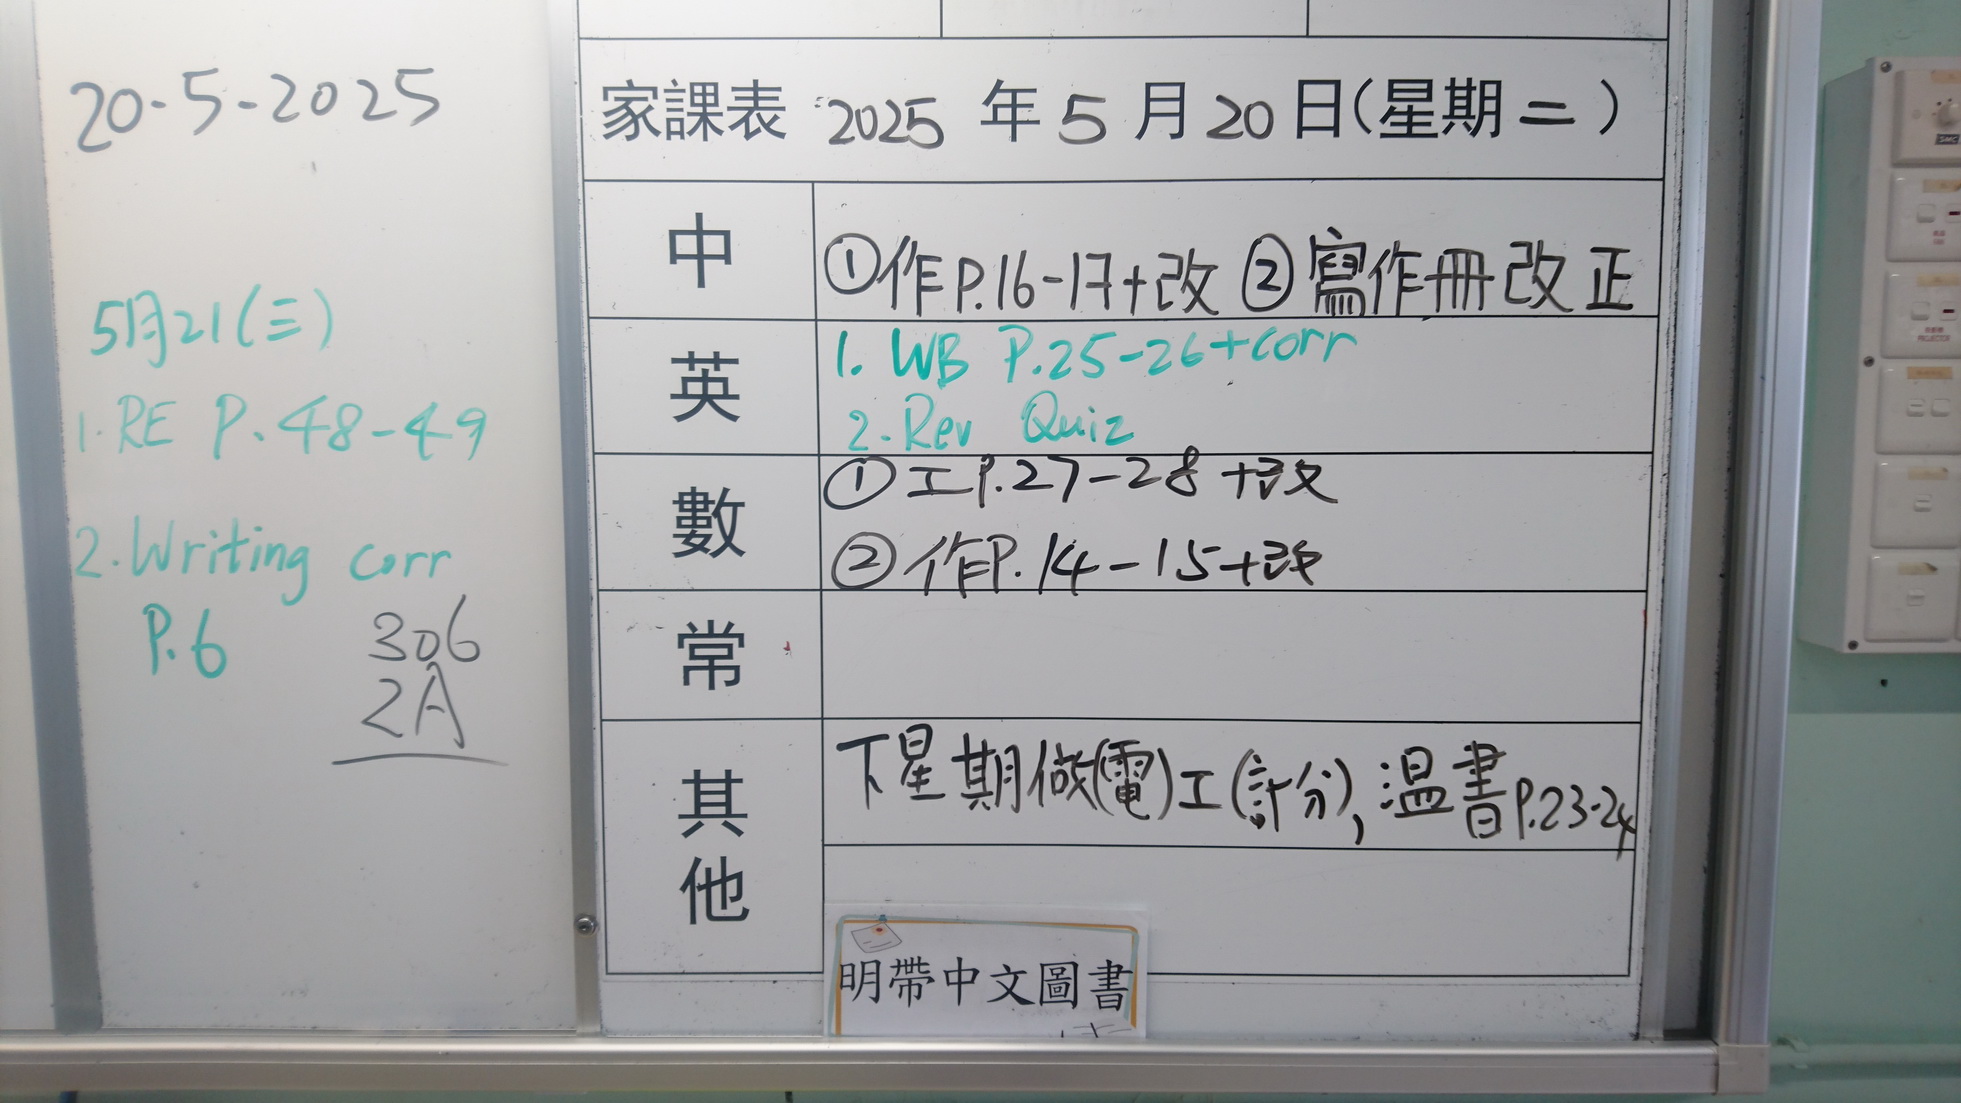 20-5-2025
5月21(三)
1. RE P. 48-49
2. Writing corr
P.6
306
2A
家課表 2025 年 5 月 20 日(星期二)
中
①作P.16-17+改 ②寫作冊改正
英
1. WB P.25-26+corr
2. Rev Quiz
數
①工P.27-28+改
②作P.14-15+改
常
其他
下星期做(電)工(計分), 溫書P.23-24
明帶中文圖書